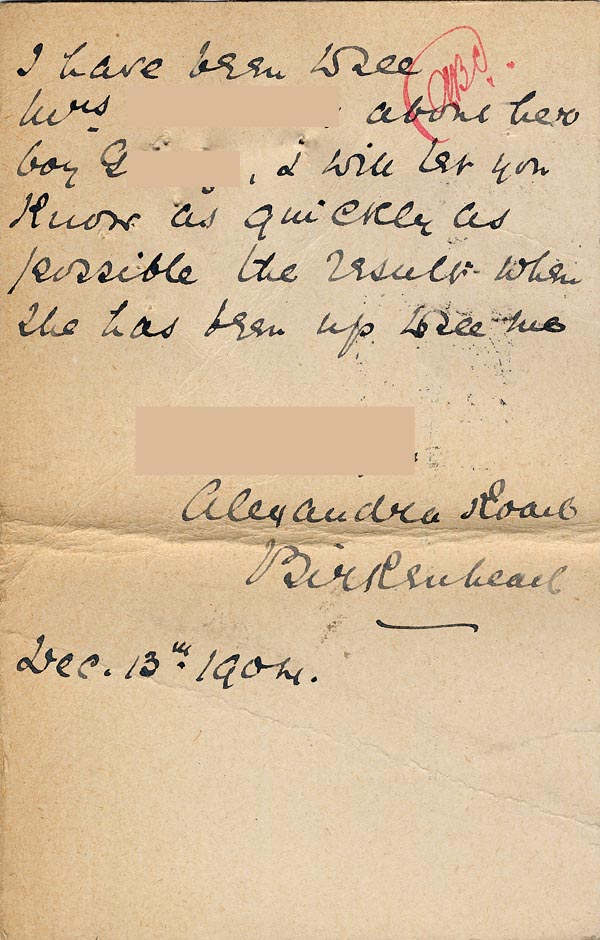 I have been to see
Mrs about her
boy G , & will let you
Know as quickly as
possible the result when
she has been up to see me
Alexandra Road
Birkenhead
Dec. 13th. 1904.